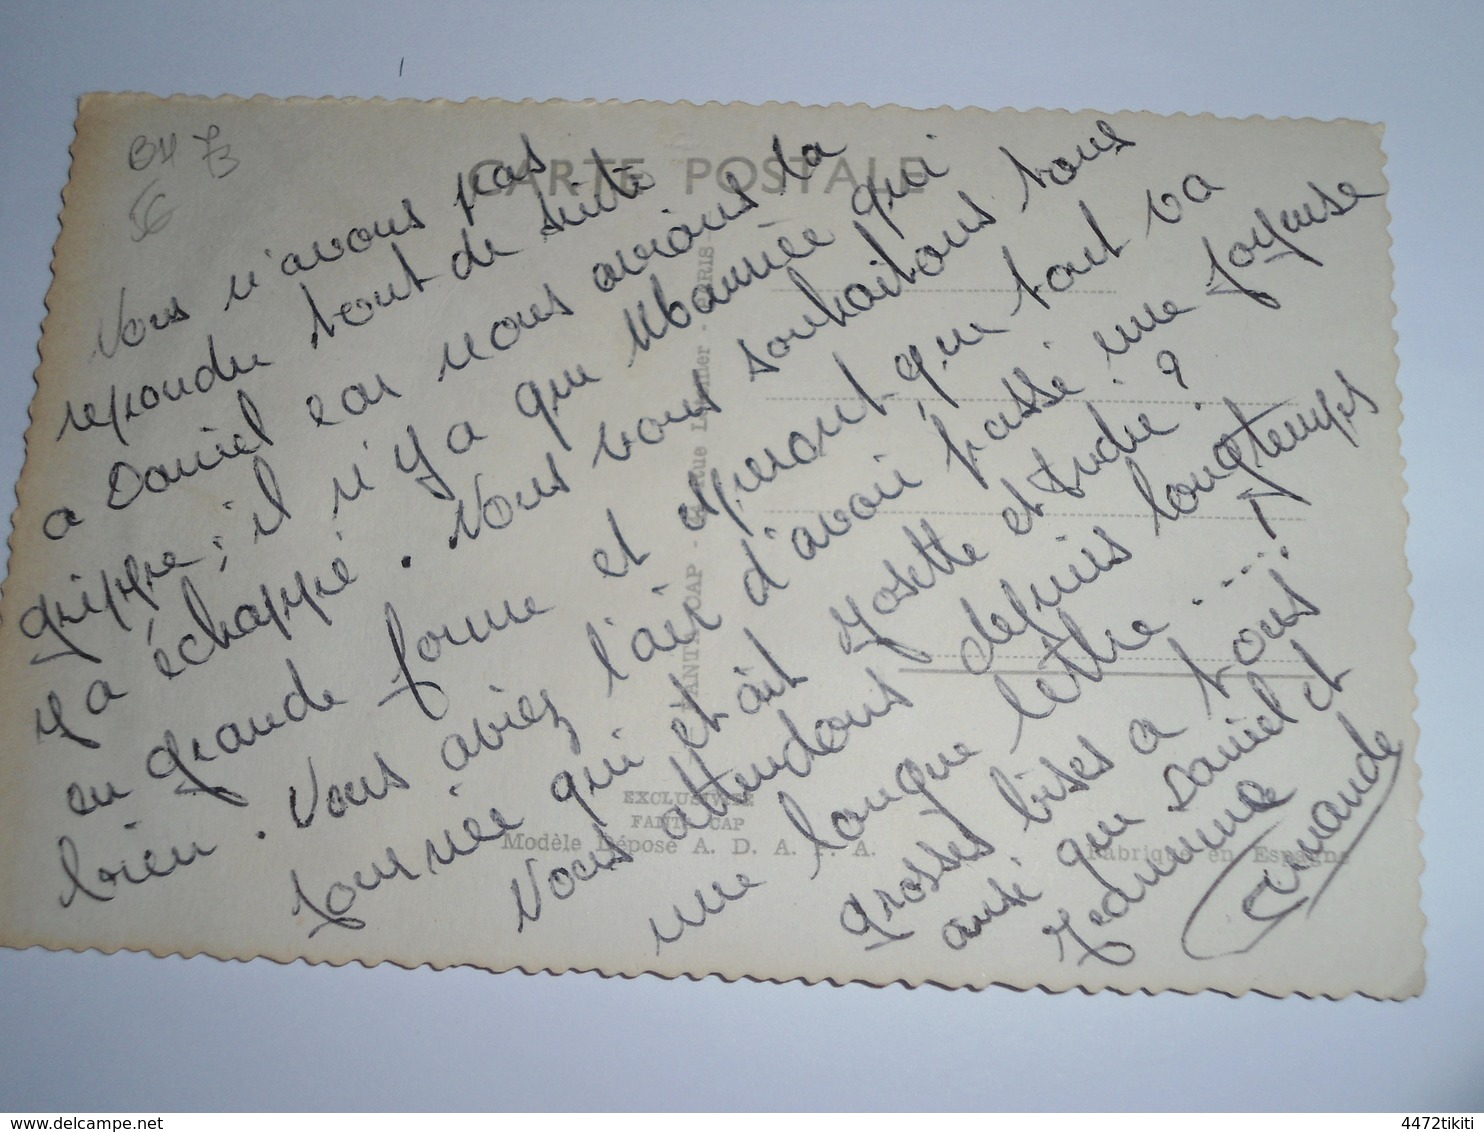 CARTE POSTALE
56
Nous n'avons pas
repondu tout de suite
a Daniel car nous avions la
grippe; il n'y a que Mbamiée qui
y a échappé. Nous vous souhaitons tous
en grande forme et esperont que tout va
bien. Vous aviez l'air d'avoir passé une joyeuse
journée qui etait Yosette et Andre?
Nous attendons depuis longtemps
une longue lettre....!
grosses bises a tous
ausi que Daniel et
Jeannine
Armande
FANTAICAP - Rue - PARIS
EXCLUSIVITE
FANTAICAP
Modèle Déposé A. D. A. . A.
Fabriqué en Espagne
4472tikiti